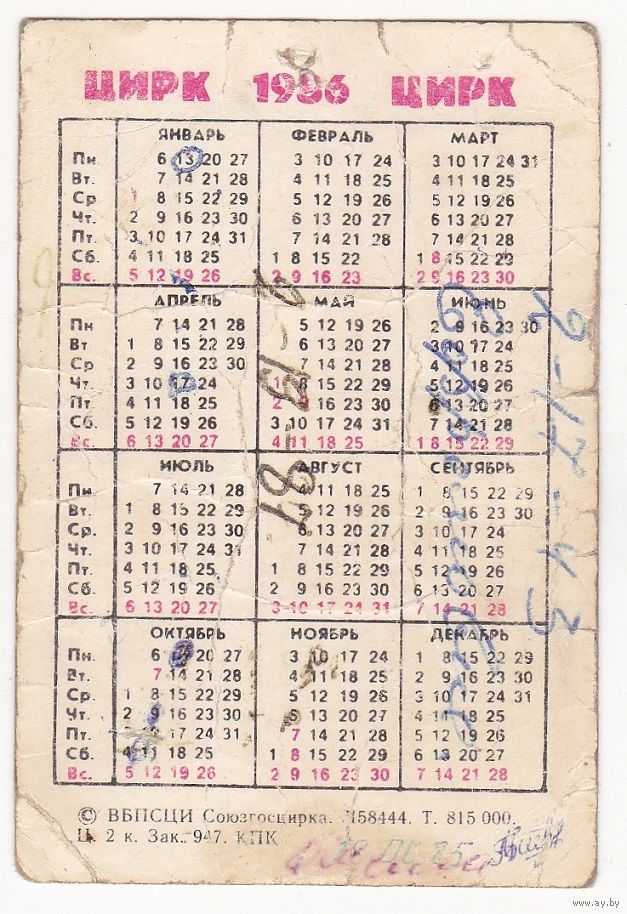 ЦИРК 1986 ЦИРК
ЯНВАРЬ ФЕВРАЛЬ МАРТ
Пн. 6 13 20 27 3 10 17 24 3 10 17 24 31
Вт. 7 14 21 28 4 11 18 25 4 11 18 25
Ср 1 8 15 22 29 5 12 19 26 5 12 19 26
Чт. 2 9 16 23 30 6 13 20 27 6 13 20 27
Пт. 3 10 17 24 31 7 14 21 28 7 14 21 28
Сб. 4 11 18 25 1 8 15 22 1 8 15 22 29
Вс. 5 12 19 26 2 9 16 23 2 9 16 23 30
АПРЕЛЬ МАЙ ИЮНЬ
Пн 7 14 21 28 5 12 19 26 2 9 16 23 30
Вт 1 8 15 22 29 6 13 20 27 3 10 17 24
Ср 2 9 16 23 30 7 14 21 28 4 11 18 25
Чт. 3 10 17 24 1 8 15 22 29 5 12 19 26
Пт. 4 11 18 25 2 9 16 23 30 6 13 20 27
Сб. 5 12 19 26 3 10 17 24 31 7 14 21 28
Вс. 6 13 20 27 4 11 18 25 1 8 15 22 29
ИЮЛЬ АВГУСТ СЕНТЯБРЬ
Пн. 7 14 21 28 4 11 18 25 1 8 15 22 29
Вт. 1 8 15 22 29 5 12 19 26 2 9 16 23 30
Ср. 2 9 16 23 30 6 13 20 27 3 10 17 24
Чт. 3 10 17 24 31 7 14 21 28 4 11 18 25
Пт. 4 11 18 25 1 8 15 22 29 5 12 19 26
Сб. 5 12 19 26 2 9 16 23 30 6 13 20 27
Вс. 6 13 20 27 3 10 17 24 31 7 14 21 28
ОКТЯБРЬ НОЯБРЬ ДЕКАБРЬ
Пн. 6 20 27 3 10 17 24 1 8 15 22 29
Вт. 7 14 21 28 4 11 18 25 2 9 16 23 30
Ср. 1 8 15 22 29 5 12 19 26 3 10 17 24 31
Чт. 2 9 16 23 30 6 13 20 27 4 11 18 25
Пт. 17 24 31 7 14 21 28 5 12 19 26
Сб. 4 11 18 25 1 8 15 22 29 6 13 20 27
Вс. 5 12 19 26 2 9 16 23 30 7 14 21 28
© ВБПСЦИ Союзгосцирка. Л58444. Т. 815 000.
Ц. 2 к. Зак. 947. КПК
www.ay.by